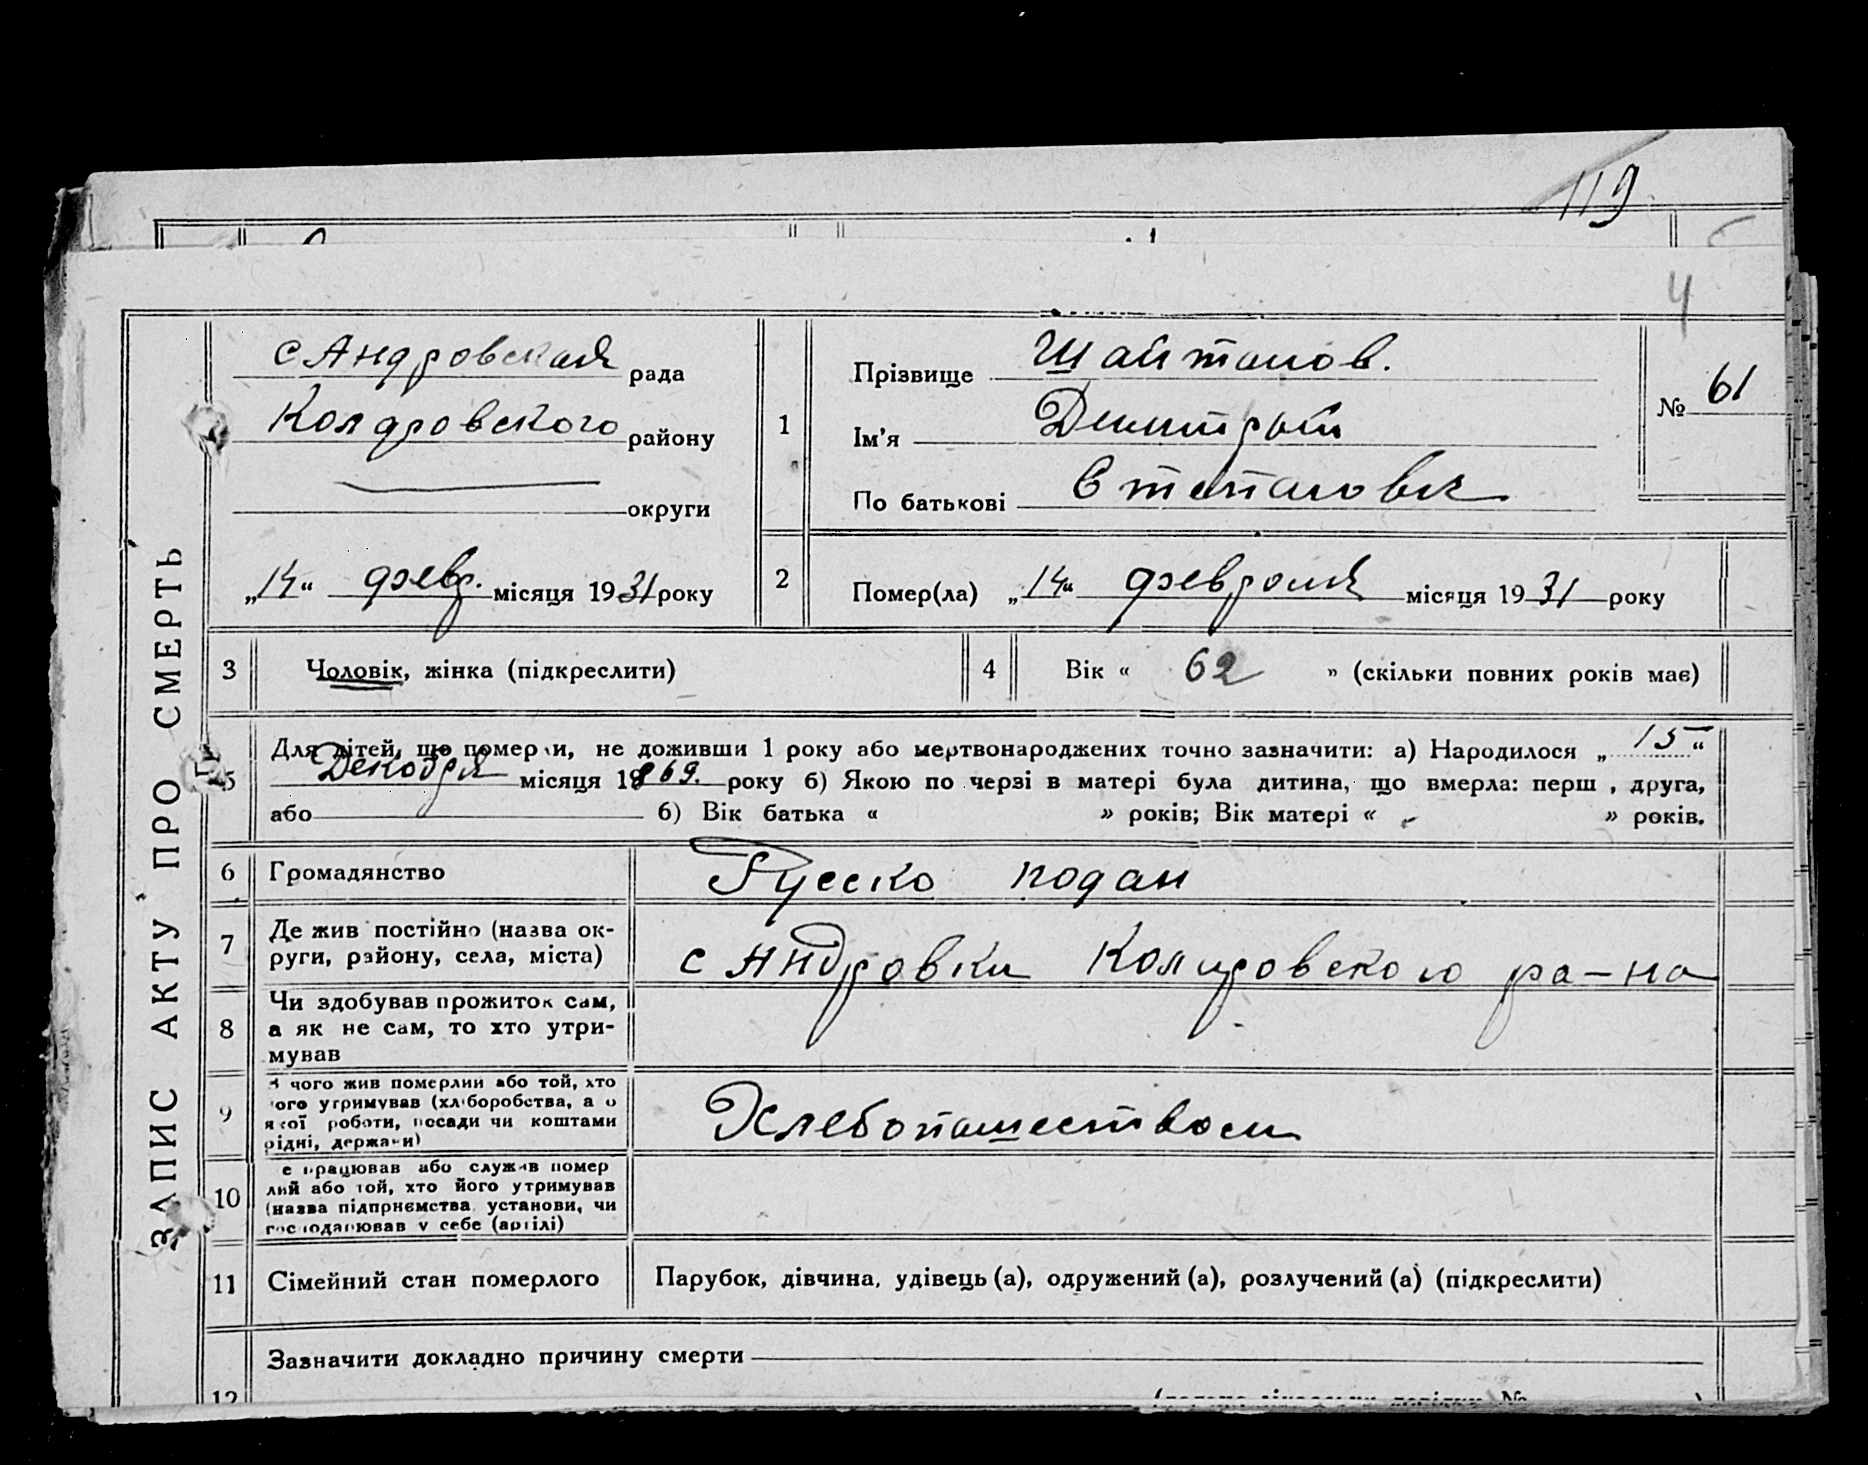 119
4
ЗАПИС АКТУ ПРО СМЕРТЬ
с Андровская рада
Колдровского району
округи
„14“ февр. місяця 1931 року
1
Прізвище Шайтанов.
Ім'я Дмитрий
По батькові Степанович
№ 61
2
Помер(ла) „14“ февраля місяця 1931 року
3 Чоловік, жінка (підкреслити)
4 Вік « 62 » (скільки повних років має)
5 Для дітей, що померли, не доживши 1 року або мертвонароджених точно зазначити: а) Народилося „15“
Декабря місяця 1869. року б) Якою по черзі в матері була дитина, що вмерла: перш , друга,
або 6) Вік батька « » років; Вік матері « » років.
6 Громадянство Русско подан
7 Де жив постійно (назва ок-
руги, району, села, міста) с Андровки ра-на
8 Чи здобував прожиток сам,
а як не сам, то хто утри-
мував
9 З чого жив померлий або той, хто
його утримував (хліборобства, а о
якої роботи, посади чи коштами
рідні, держави)
Хлебопашеством
10 е працював або служив помер
лий або той, хто його утримував
(назва підприємства, установи, чи
господарював у себе (артілі)
11 Сімейний стан померлого Парубок, дівчина, удівець (а), одружений (а), розлучений (а) (підкреслити)
Зазначити докладно причину смерти
12